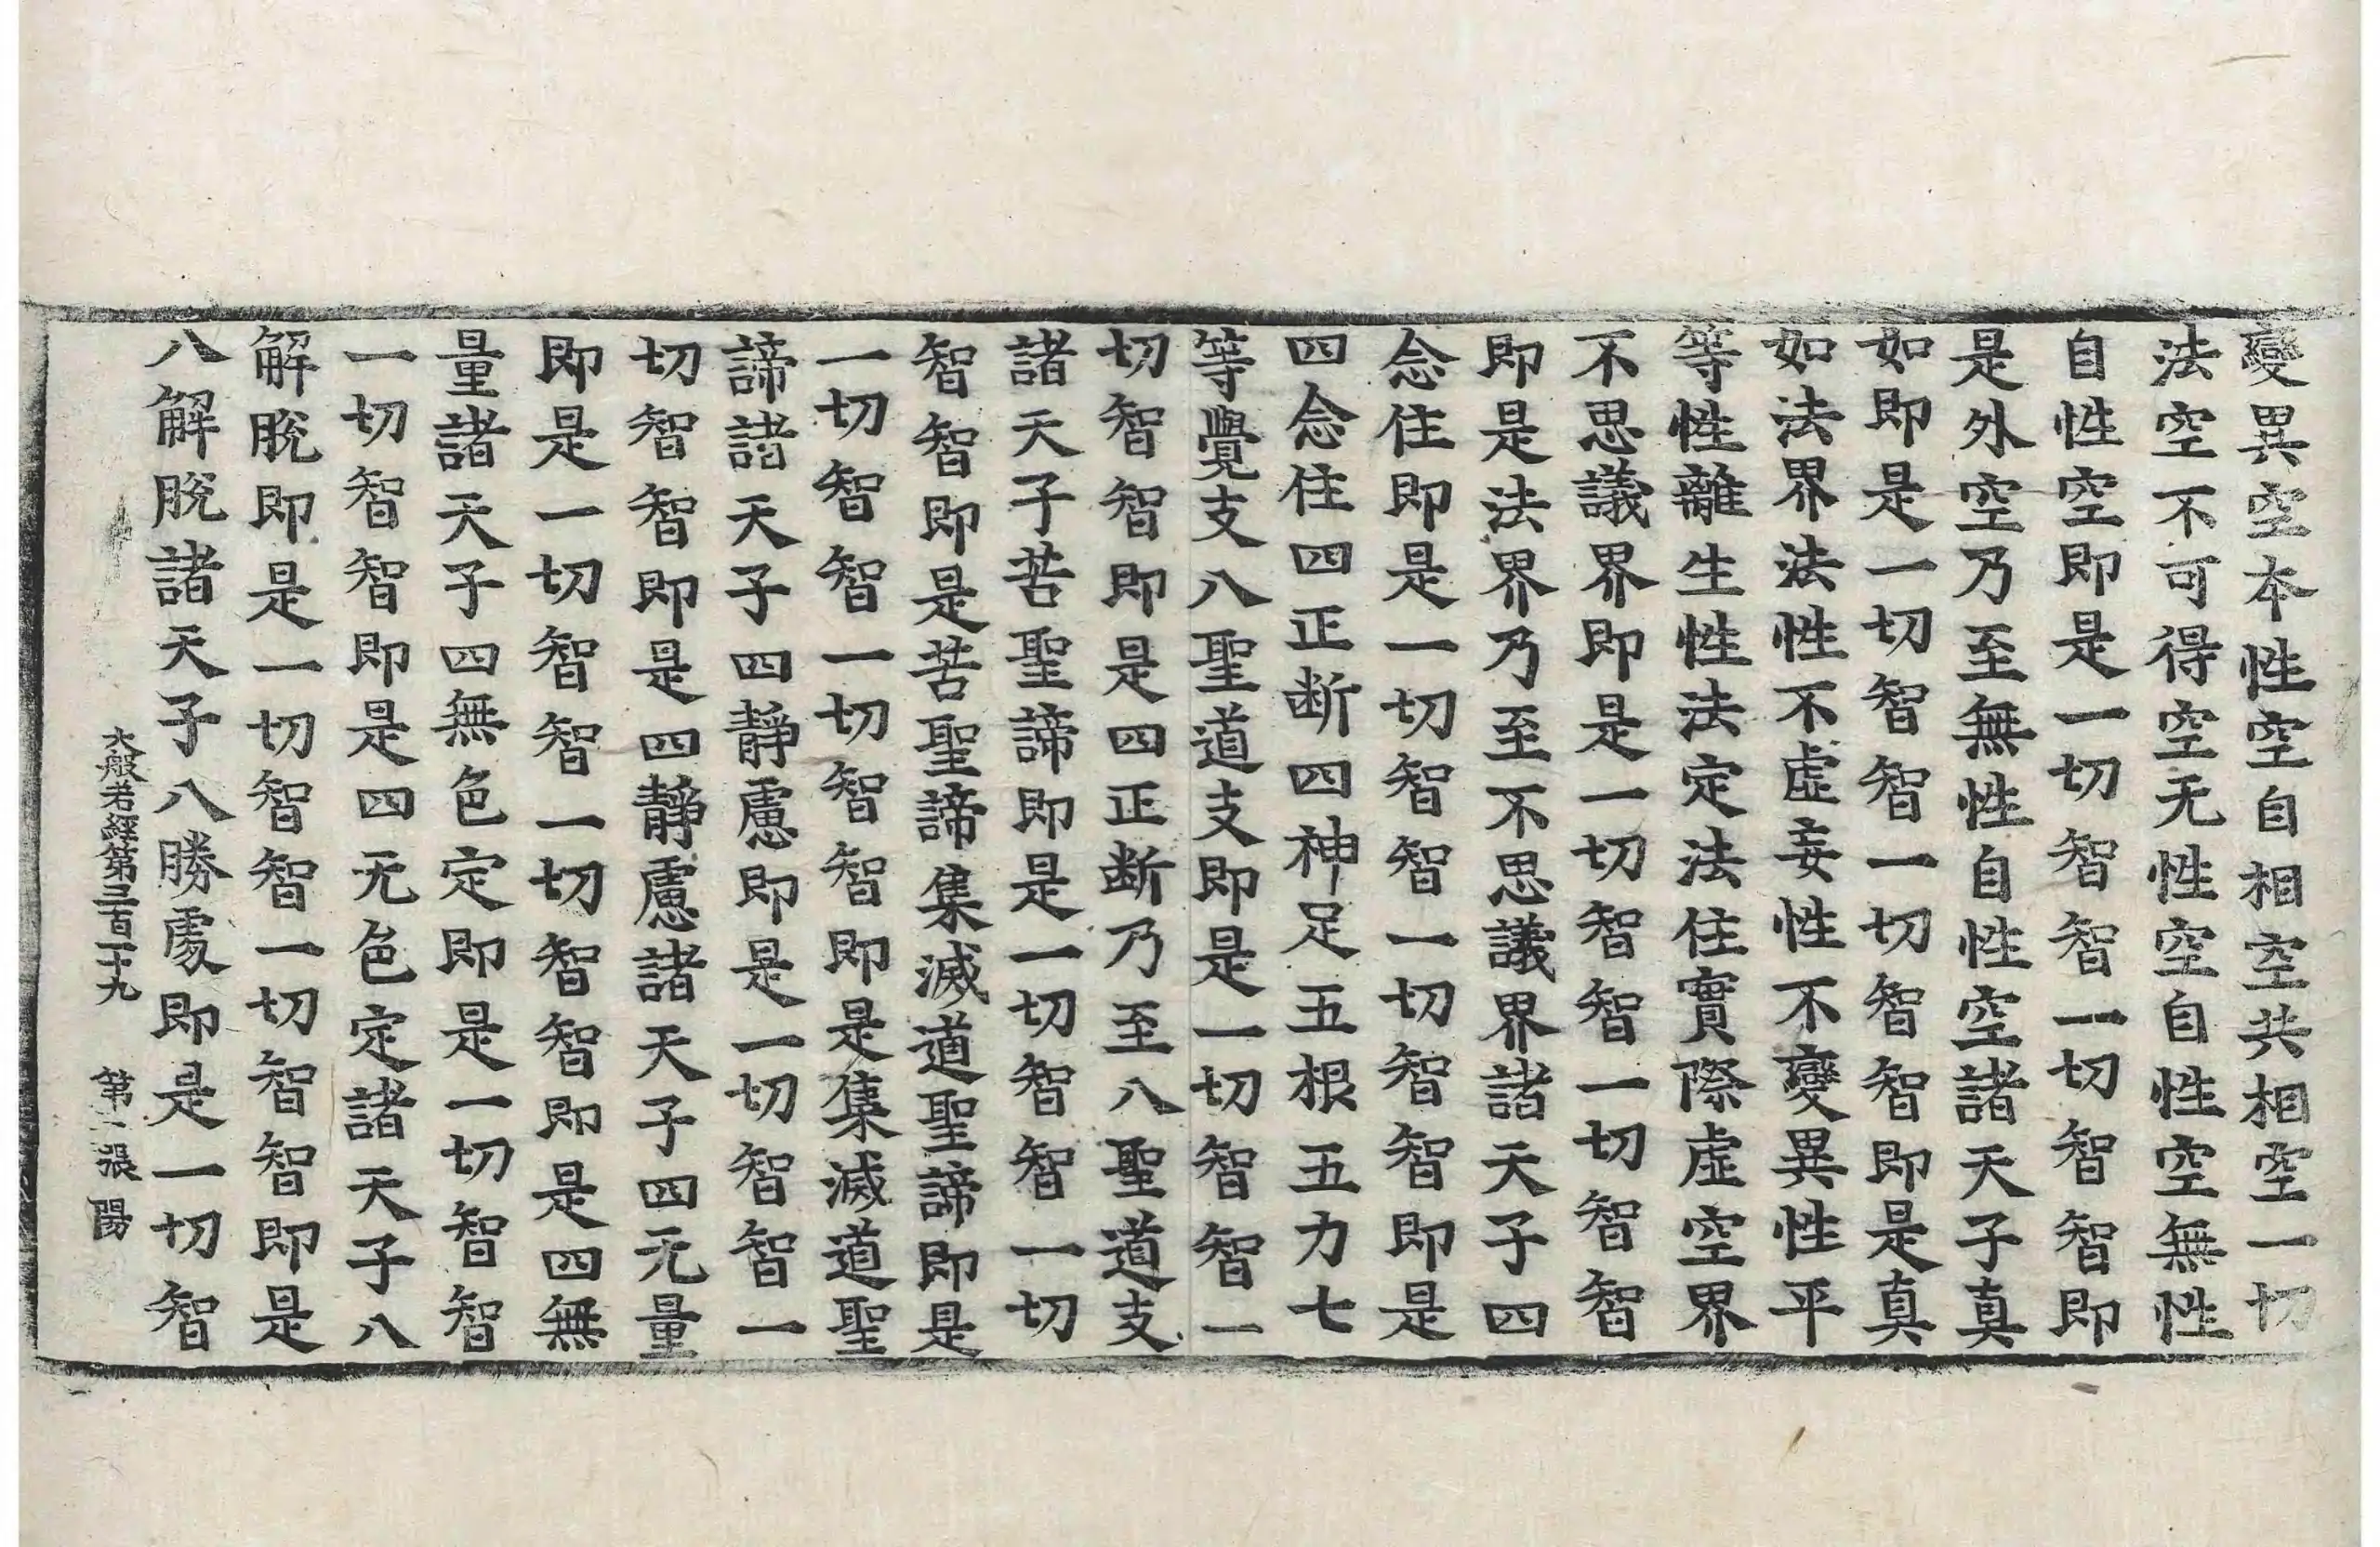 變異空本性空自相空共相空一切
法空不可得空无性空自性空無性
自性空即是一切智智一切智智即
是外空乃至無性自性空諸天子真
如即是一切智智一切智智即是真
如法界法性不虛妄性不變異性平
等性離生性法定法住實際虛空界
不思議界即是一切智智一切智智
即是法界乃至不思議界諸天子四
念住即是一切智智一切智智即是
四念住四正断四神足五根五力七
等覺支八聖道支即是一切智智一
切智智即是四正断乃至八聖道支
諸天子苦聖諦即是一切智智一切
智智即是苦聖諦集滅道聖諦即是
一切智智一切智智即是集滅道聖
諦諸天子四靜慮即是一切智智一
切智智即是四靜慮諸天子四无量
即是一切智智一切智智即是四無
量諸天子四無色定即是一切智智
一切智智即是四无色定諸天子八
解脫即是一切智智一切智智即是
八解脫諸天子八勝處即是一切智
大般若經第三百二十九 第二張 陽